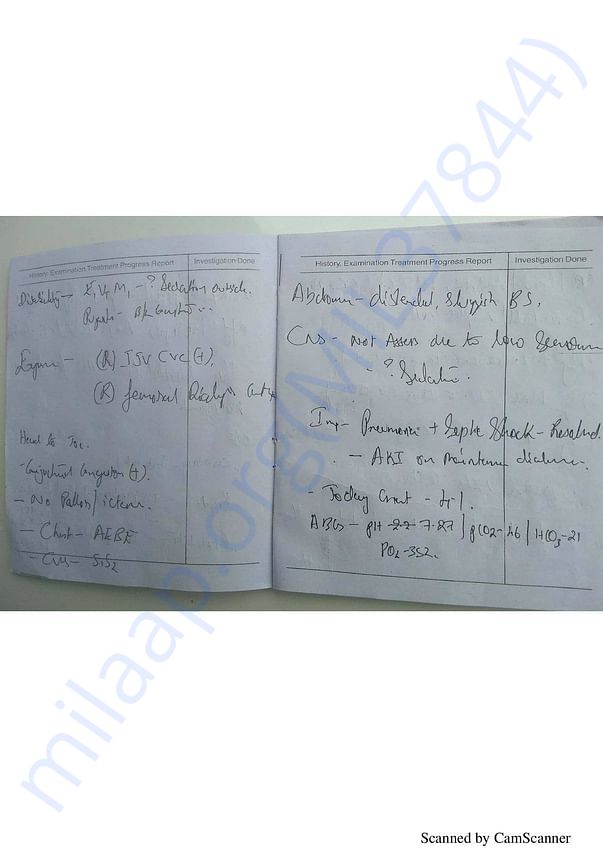 History, Examination Treatment Progress Report
Investigation Done
Disability → E, VT M, - ? Sedation outside.
Pupils -
Exposure - (R) IJV CVC (+),
(R) femoral Dialysis
Head to Toe.
- Conjunctival congestion (+).
- No Pallor / icterus.
- Chest - AEBE
- CVS - S1S2
History, Examination Treatment Progress Report
Investigation Done
Abdomen - distended, sluggish BS,
CNS - not Assess due to low
- ? Sedation.
Imp - Pneumonia + Septic Shock - Resolved.
- AKI on
- Today Creat - 4.1.
ABG - pH 7.27 | pCO2 - 46 | HCO3 - 21
PO2 - 352.
milaap.org(MILB37844)
Scanned by CamScanner